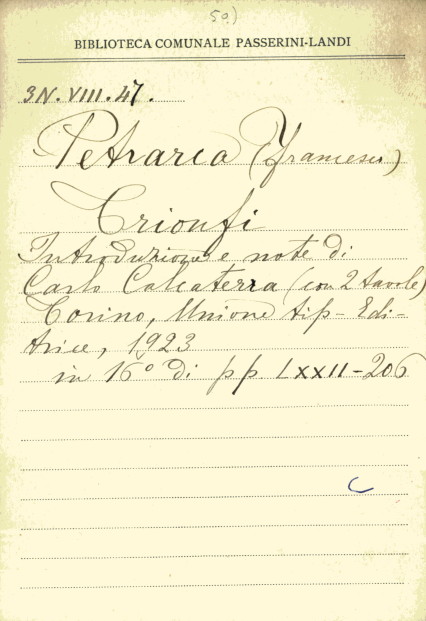 50)
BIBLIOTECA COMUNALE PASSERINI-LANDI
3N.VIII.47.
Petrarca (Francesco)
Trionfi
Introduzione e note di
Carlo Calcaterra (con 2 tavole)
Torino, Unione tip-Edi-
trice, 1923
in 16º di pp. LXXII-206